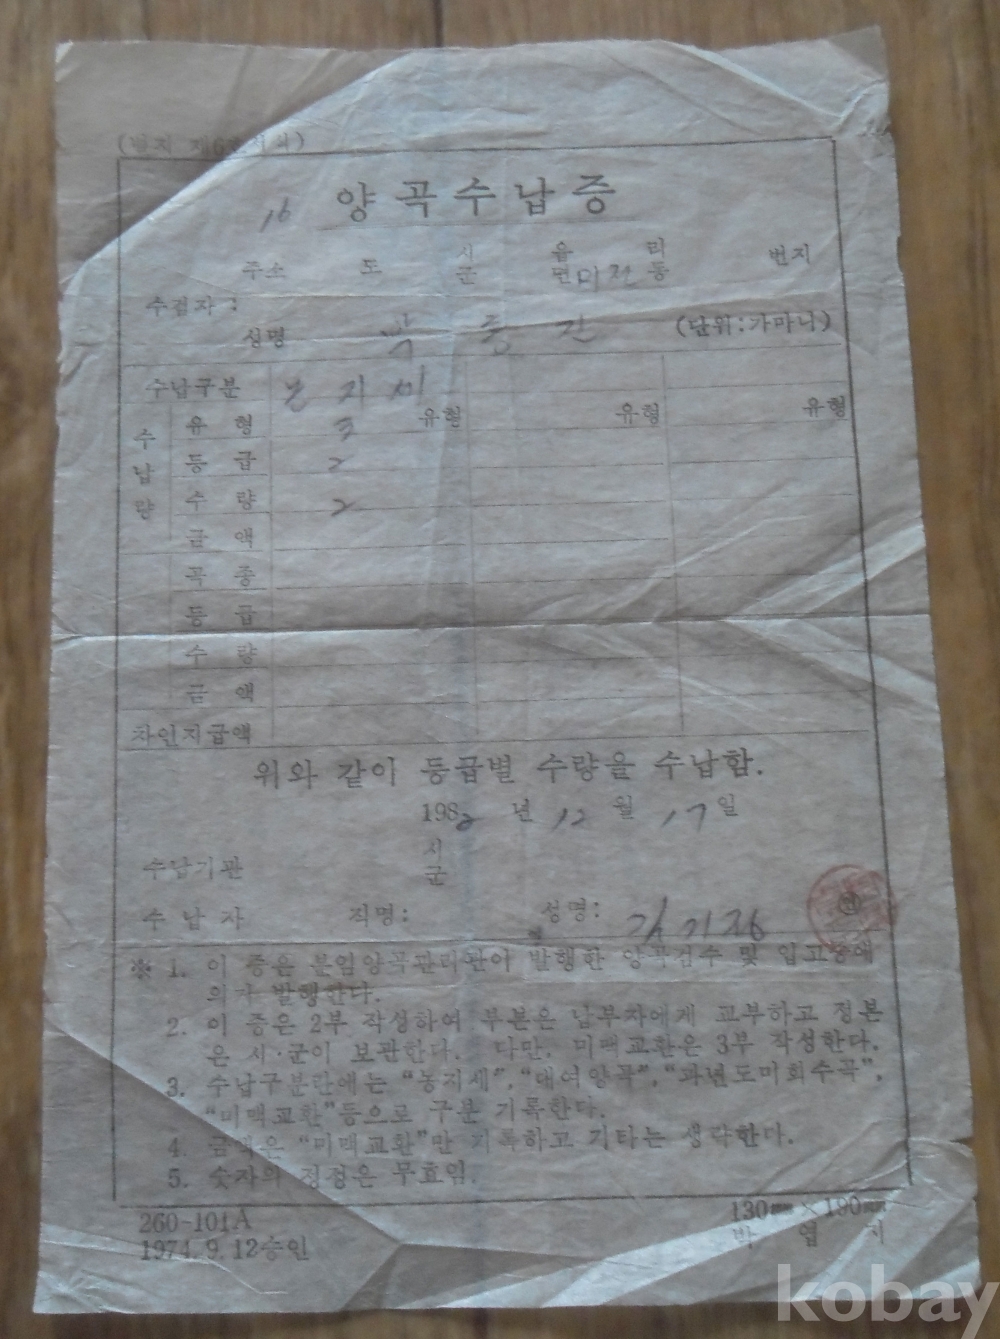 (별지 제6호서식)
16 양곡수납증
주소 도 시 군 읍 면 미전 리 동 번지
수검자 :
성명 박 종 (단위:가마니)
수납구분 농지세
수납량
유형 3 유형 유형 유형
등급 2
수량 2
금액
곡종
등급
수량
금액
차인지급액
위와 같이 등급별 수량을 수납함.
1982 년 12 월 17 일
수납기관 시 군
수납자 직명: 성명: 김기 ㊞
※ 1. 이 증은 분임양곡관리관이 발행한 양곡검수 및 입고증에
의거 발행한다.
2. 이 증은 2부 작성하여 부본은 납부자에게 교부하고 정본
은 시·군이 보관한다. 다만, 미맥교환은 3부 작성한다.
3. 수납구분란에는 “농지세”, “대여양곡”, “과년도미회수곡”,
“미맥교환”등으로 구분 기록한다.
4. 금액은 “미맥교환”만 기록하고 기타는 생략한다.
5. 숫자의 정정은 무효임.
260-101A
1974. 9. 12승인
130㎜×190㎜
박엽지
kobay